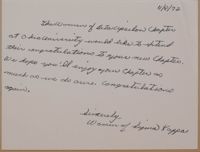 11/4/72
The Women of Beta Upsilon Chapter
at Ohio University would like to extend
their congratulations to your new Chapter.
We hope you'll enjoy your Chapter as
much as we do ours. Congratulations
again.
Sincerely,
Women of Sigma Kappa